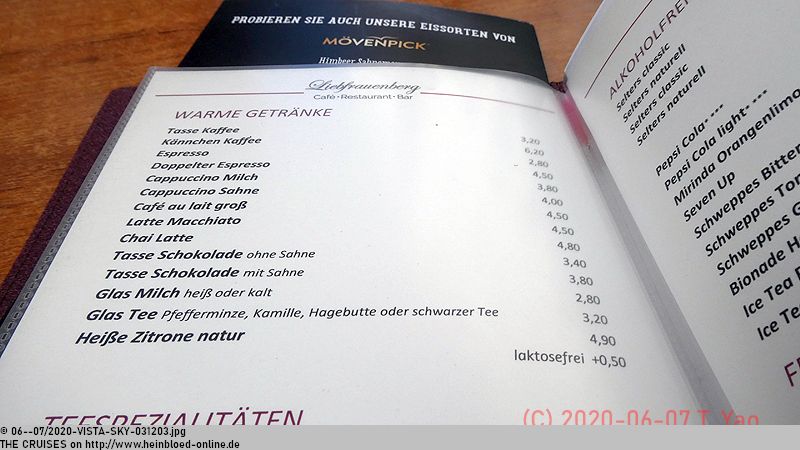 PROBIEREN SIE AUCH UNSERE EISSORTEN VON
MÖVENPICK
Himbeer
Liebfrauenberg
Café·Restaurant·Bar
WARME GETRÄNKE
Tasse Kaffee 3,20
Kännchen Kaffee 6,20
Espresso 2,80
Doppelter Espresso 4,50
Cappuccino Milch 3,80
Cappuccino Sahne 4,00
Café au lait groß 4,50
Latte Macchiato 4,50
Chai Latte 4,80
Tasse Schokolade ohne Sahne 3,40
Tasse Schokolade mit Sahne 3,80
Glas Milch heiß oder kalt 2,80
Glas Tee Pfefferminze, Kamille, Hagebutte oder schwarzer Tee 3,20
Heiße Zitrone natur 4,90
laktosefrei +0,50
TEESPEZIALITÄTEN
ALKOHOLFREI
Selters classic
Selters naturell
Selters classic
Selters naturell
Pepsi Cola
Pepsi Cola light
Mirinda Orangenlimo
Seven Up
Schweppes Bitter
Schweppes Ton
Schweppes G
Bionade H
Ice Tea
Ice Te
(C) 2020-06-07 T. Yao
© 06--07/2020-VISTA-SKY-031203.jpg
THE CRUISES on http://www.heinbloed-online.de